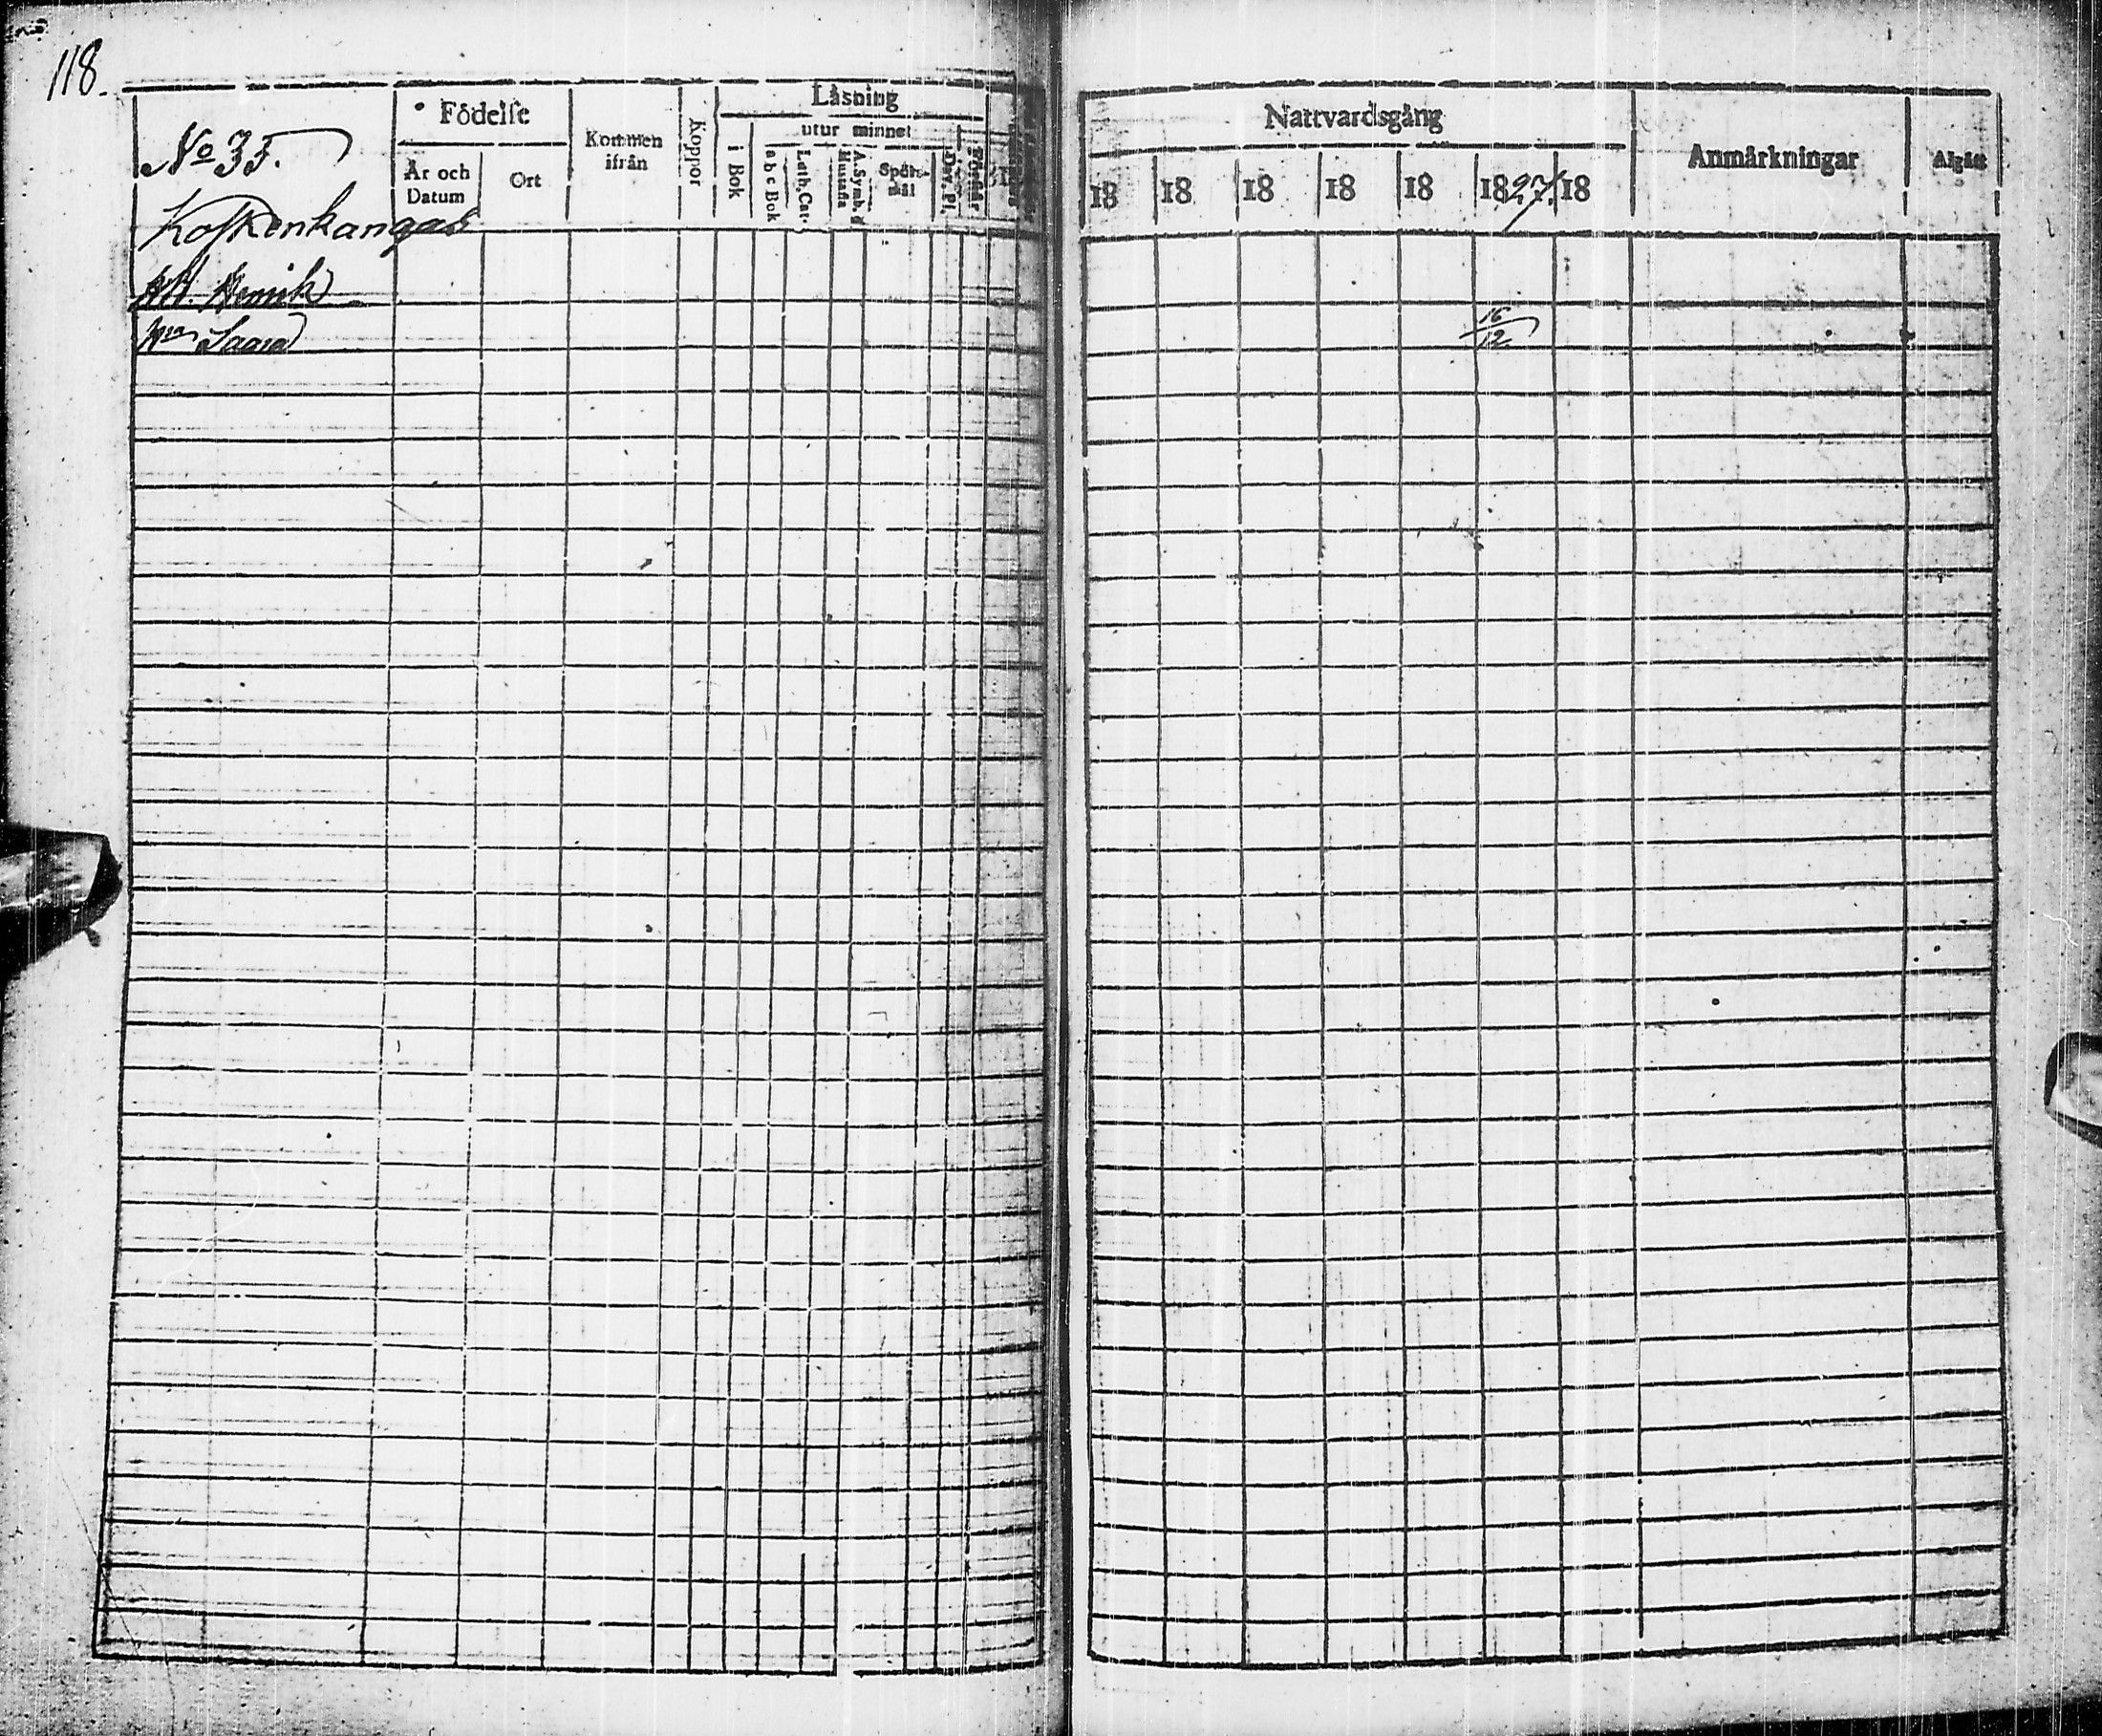 118.
No 35.
Koskenkangas
Henrik
Saara
Födelse
År och Datum
Ort
Kommen ifrån
Koppor
Läsning
i Bok
utur minnet
a b c Bok
Luth. Cat.
A. Symb.
Spörs-mål
Dav. Pl.
Nattvardsgång
18 18 18 18 18 1827. 18
Anmärkningar
Afgått
16
12